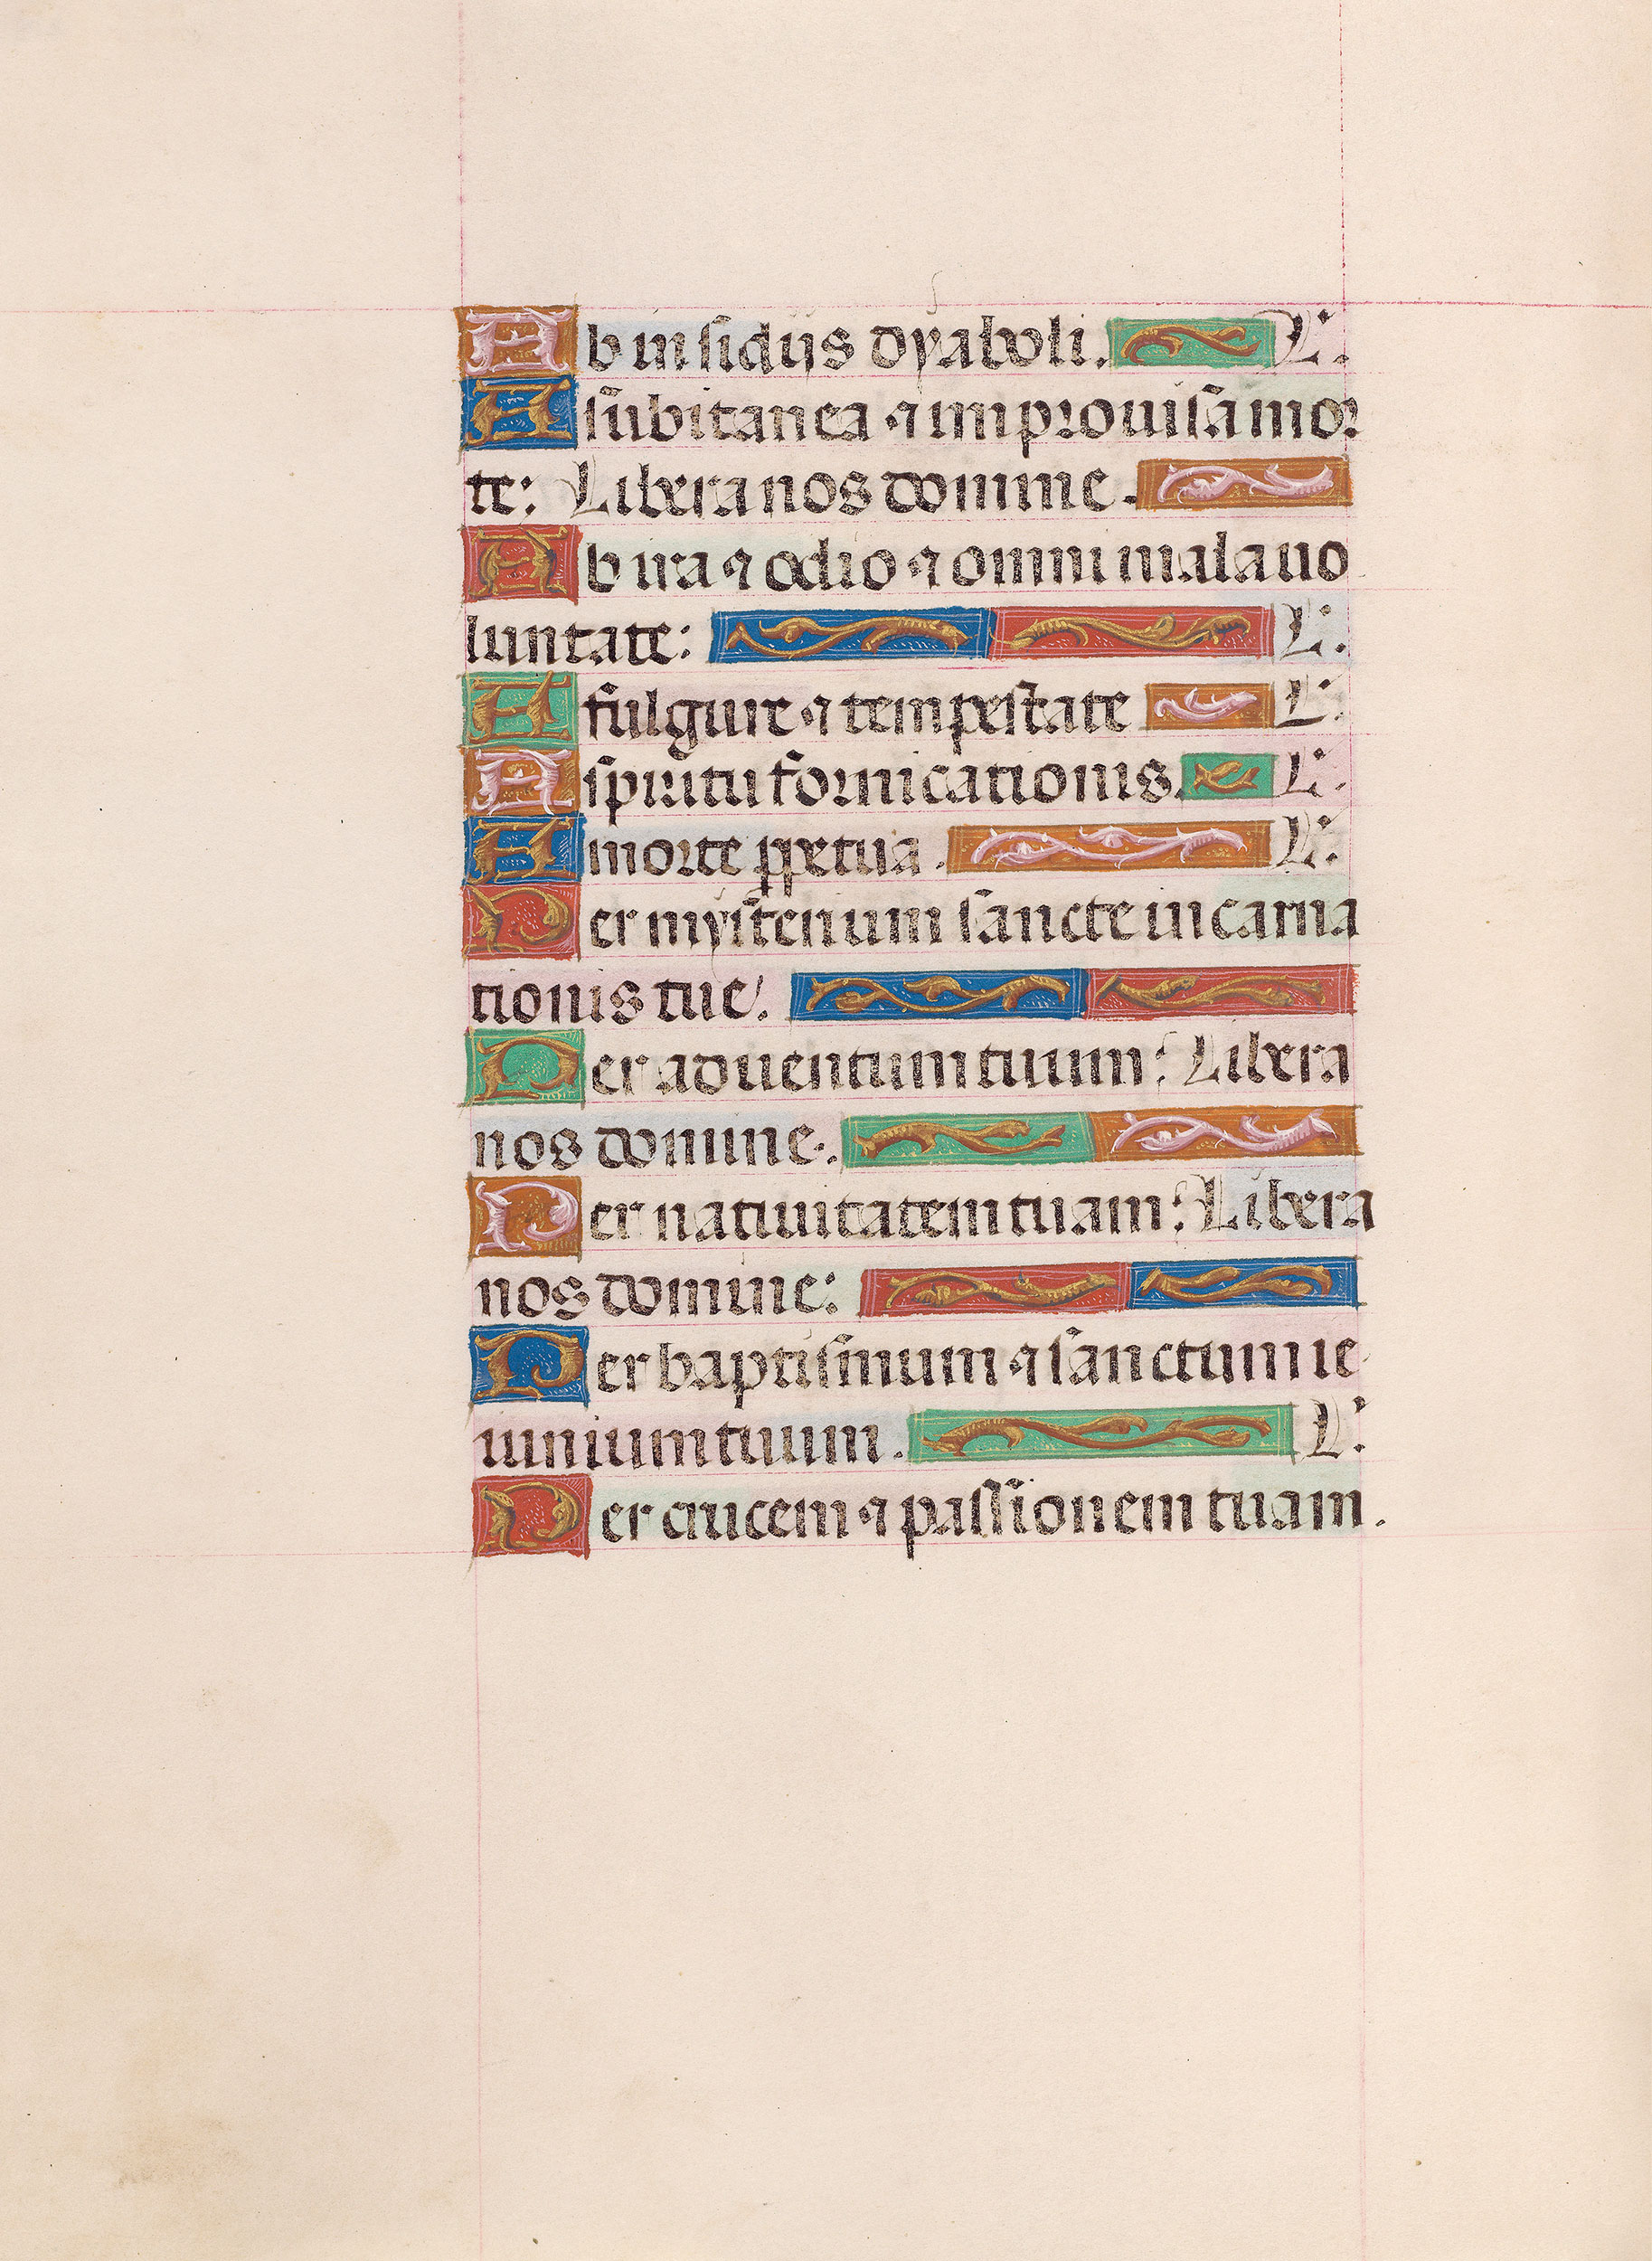 Ab insidijs dyaboli. L':
A subitanea ⁊ improuisa mor
te: Libera nos domine.
Ab ira ⁊ odio ⁊ omni mala uo
luntate: L':
A fulgure ⁊ tempestate L':
A spiritu fornicationis. L':
A morte ꝑpetua. L':
Per mysterium sancte incarna
tionis tue.
Per aduentum tuum: Libera
nos domine.
Per natiuitatem tuam: Libera
nos domine:
Per baptismum ⁊ sanctum ie
iunium tuum. L':
Per crucem ⁊ passionem tuam.